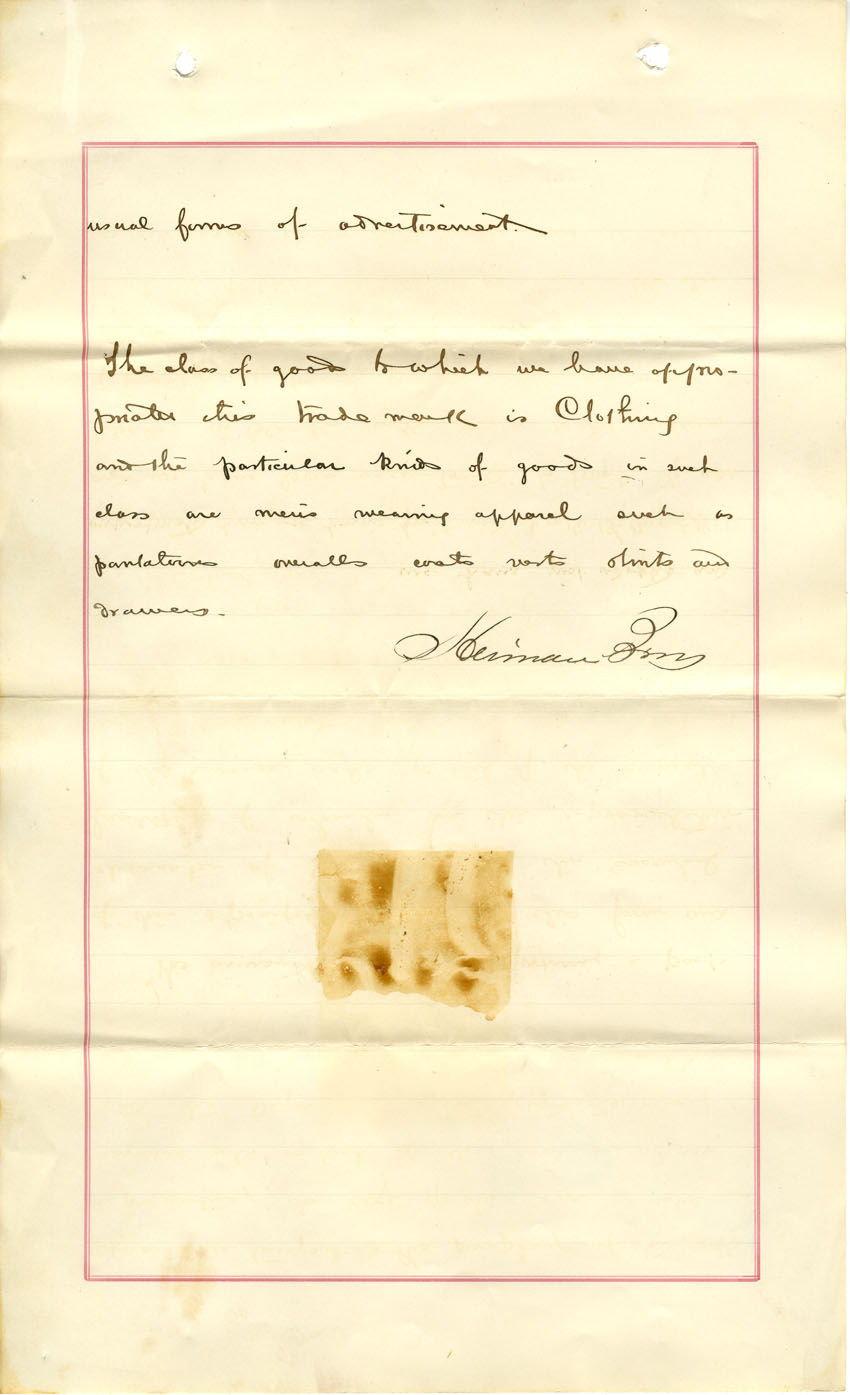 usual forms of advertisement.
The class of goods to which we have appro-
priated this trade mark is Clothing
and the particular kinds of goods in such
class are men's wearing apparel such as
pantaloons overalls coats vests shirts and
drawers.
Heiman Bros